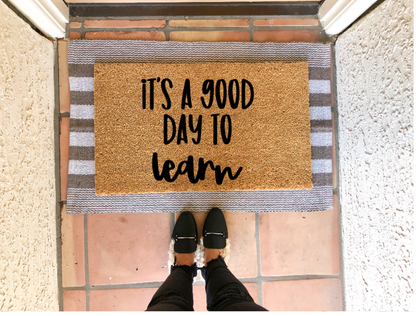 it's a good
day to
learn